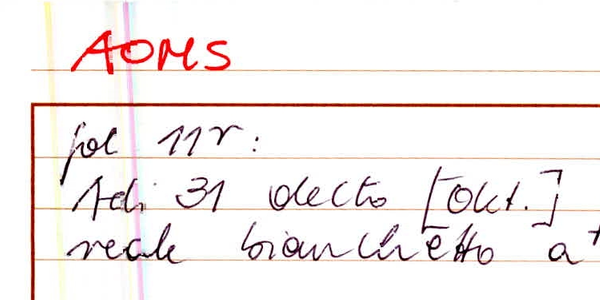 AOMS
fol 11r:
Adi 31 decto [Okt.]
reale bianchetto a